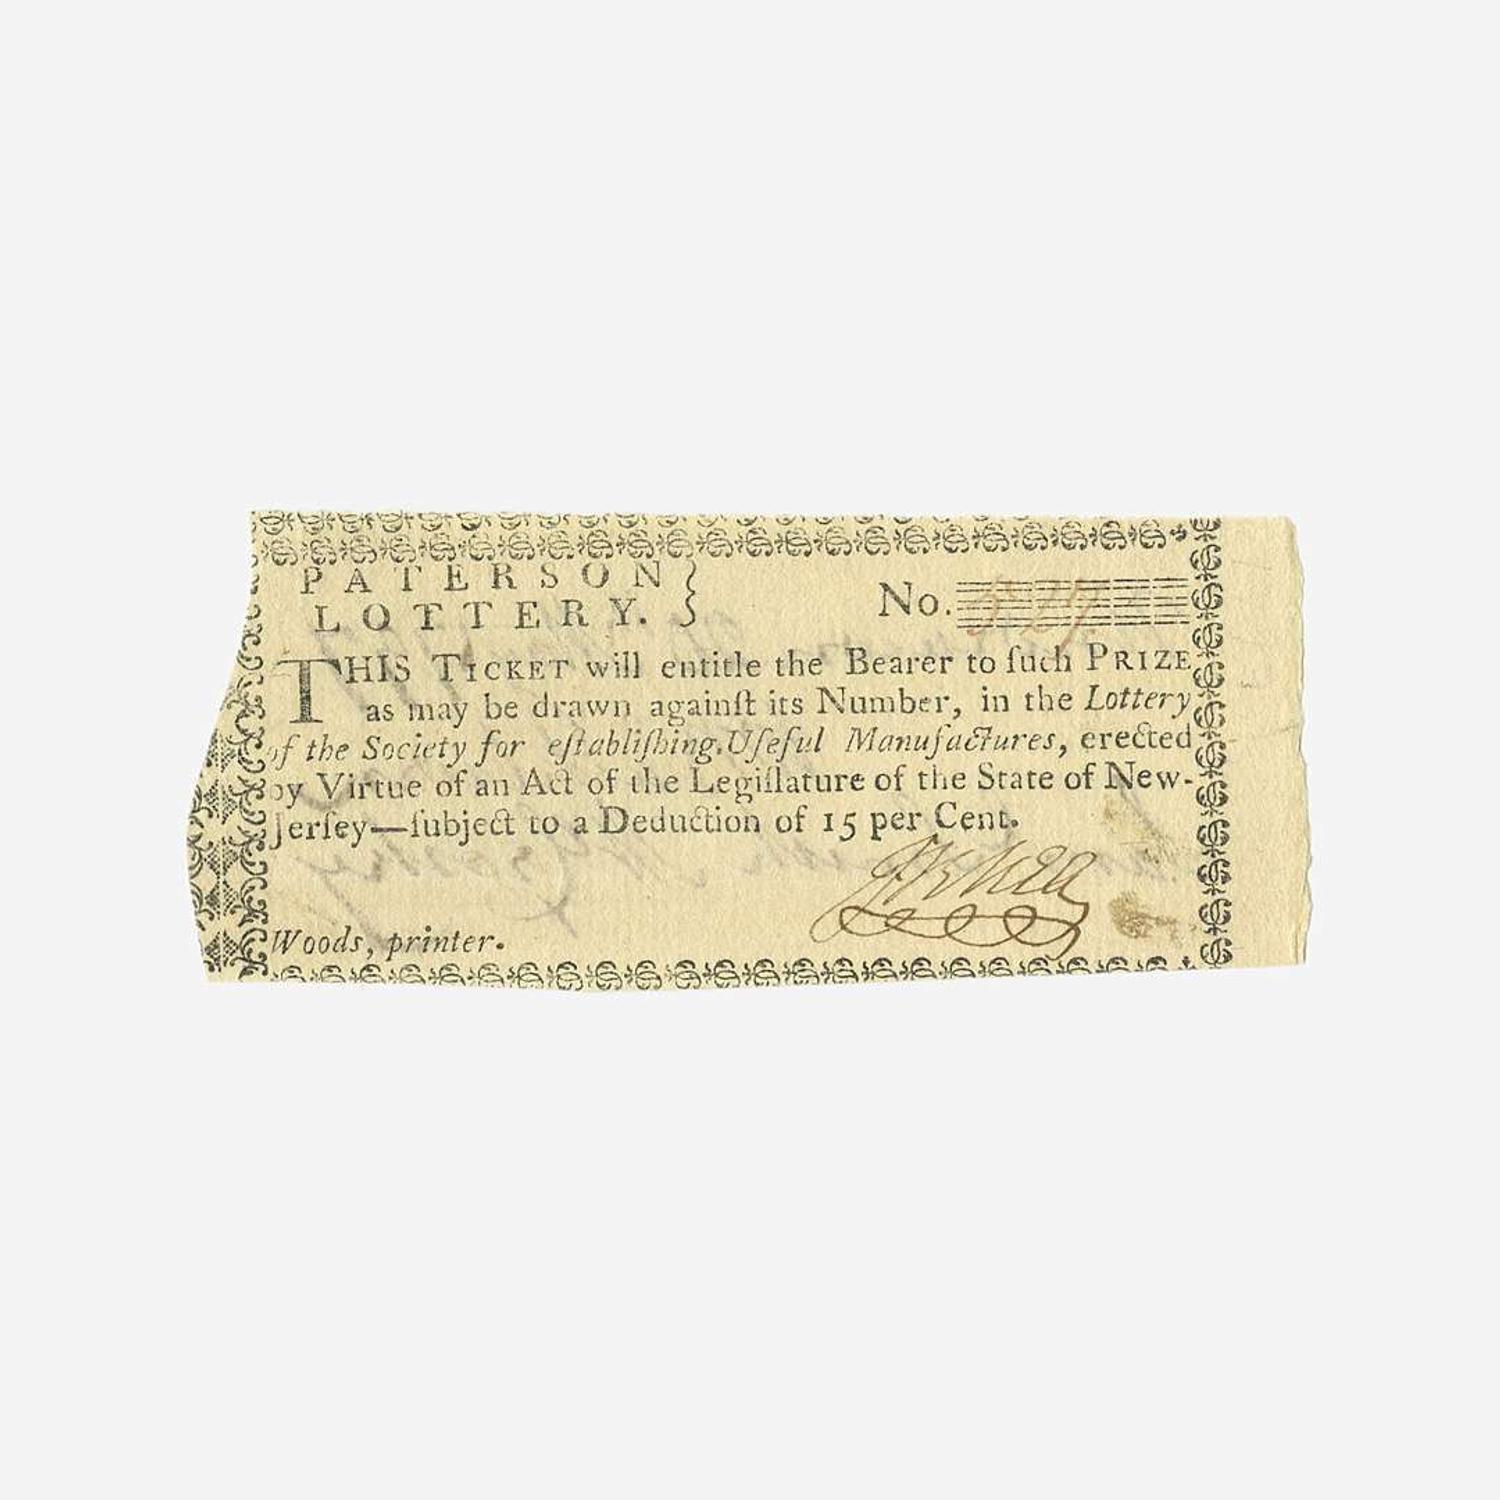 PATERSON
LOTTERY.
No.
THIS TICKET will entitle the Bearer to ſuch PRIZE
as may be drawn againſt its Number, in the Lottery
of the Society for eſtabliſhing Uſeful Manufactures, erected
by Virtue of an Act of the Legiſlature of the State of New-
Jerſey—ſubject to a Deduction of 15 per Cent.
Woods, printer.